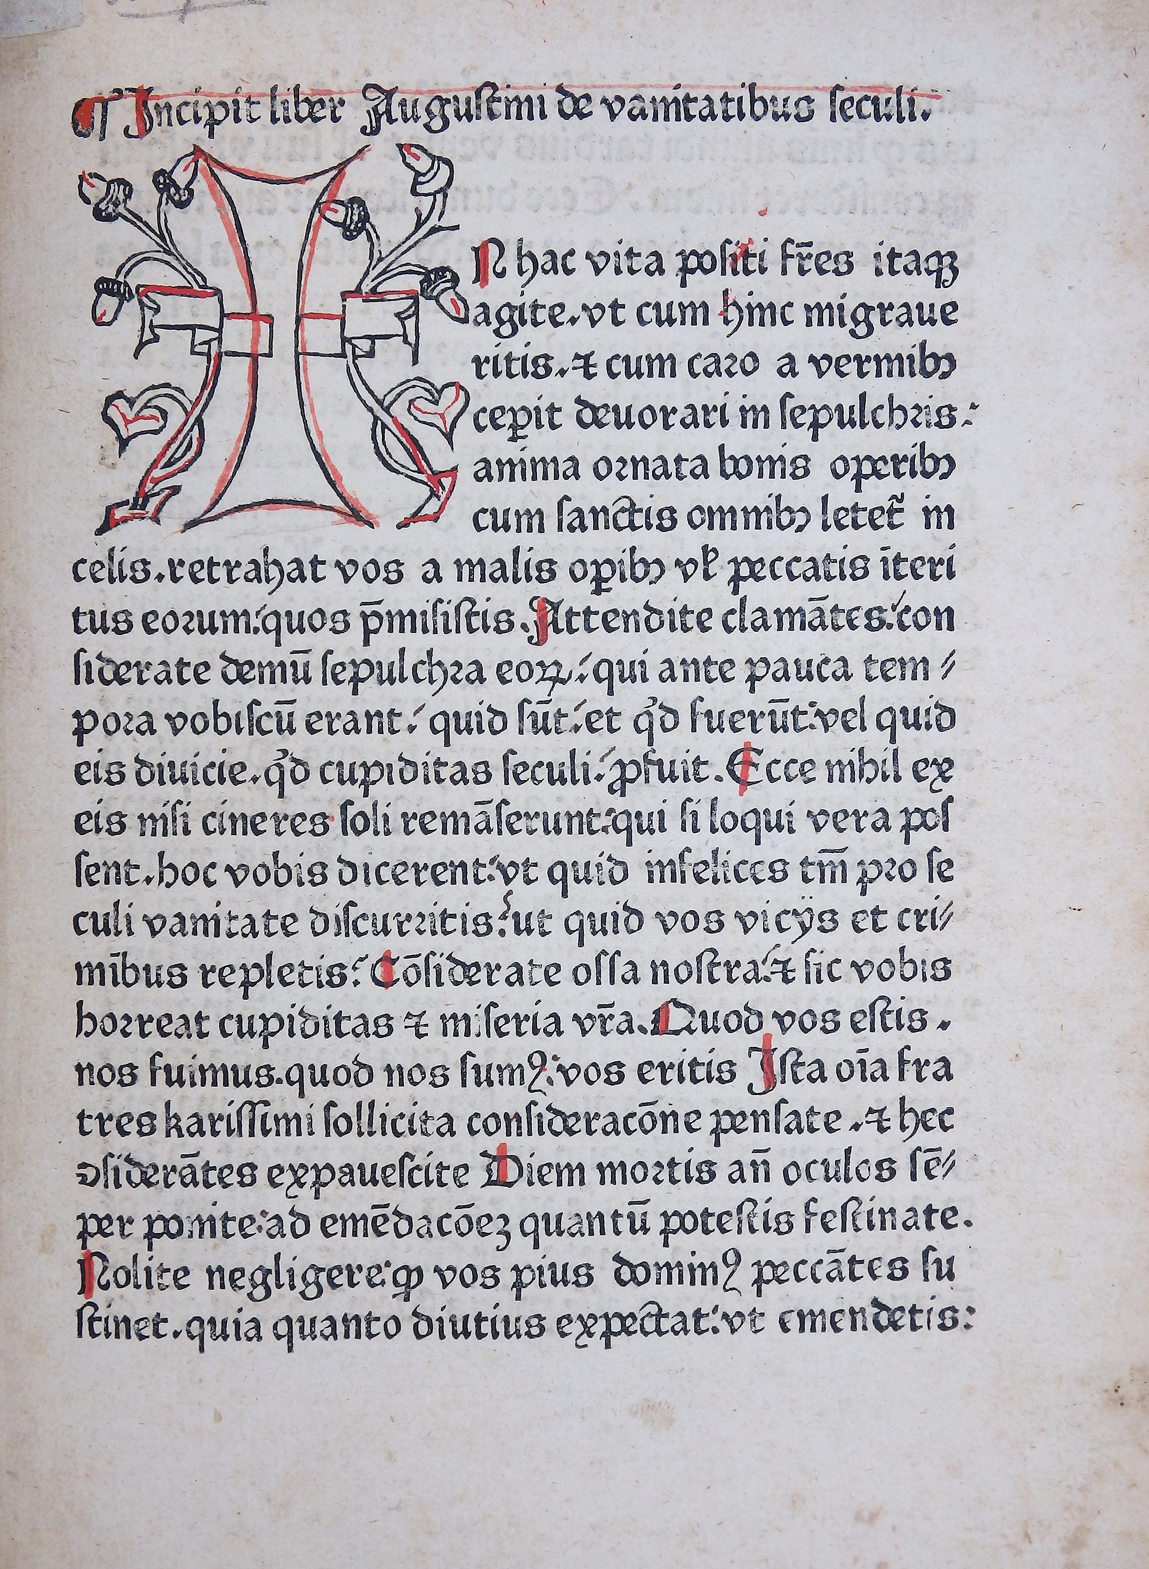 ¶ Incipit liber Augustini de vanitatibus seculi.
IN hac vita positi fr̄es itaqꝫ
agite.vt cum hinc migraue
ritis.⁊ cum caro a vermibꝰ
ceꝑit deuorari in sepulchris:
anima ornata bonis operibꝰ
cum sanctis omnibꝰ letet᷑ in
celis.retrahat vos a malis oꝑibꝰ vl̕ peccatis īteri
tus eorum:quos p̄misistis.Attendite clamātes:con
siderate demū sepulchra eoꝝ:qui ante pauca tem⸗
pora vobiscū erant:quid sūt:et qͥd fuerūt:vel quid
eis diuicie.qͥd cupiditas seculi:ꝓfuit.Ecce nihil ex
eis nisi cineres soli remāserunt:qui si loqui vera pos
sent.hoc vobis dicerent:vt quid infelices tm̄ pro se
culi vanitate discurritis?ut quid vos vicijs et cri⸗
mībus repletis?Cōsiderate ossa nostra:⁊ sic vobis
horreat cupiditas ⁊ miseria vr̄a.Quod vos estis.
nos fuimus.quod nos sumꝰ:vos eritis Ista oīa fra
tres karissimi sollicita consideracōne pensate.⁊ hec
ꝯsiderātes expauescite Diem mortis an̄ oculos sē⸗
per ponite:ad emēdacōeꝫ quantū potestis festinate.
Nolite negligere:ꝙ vos pius dominꝰ peccātes su
stinet.quia quanto diutius expectat:vt emendetis: